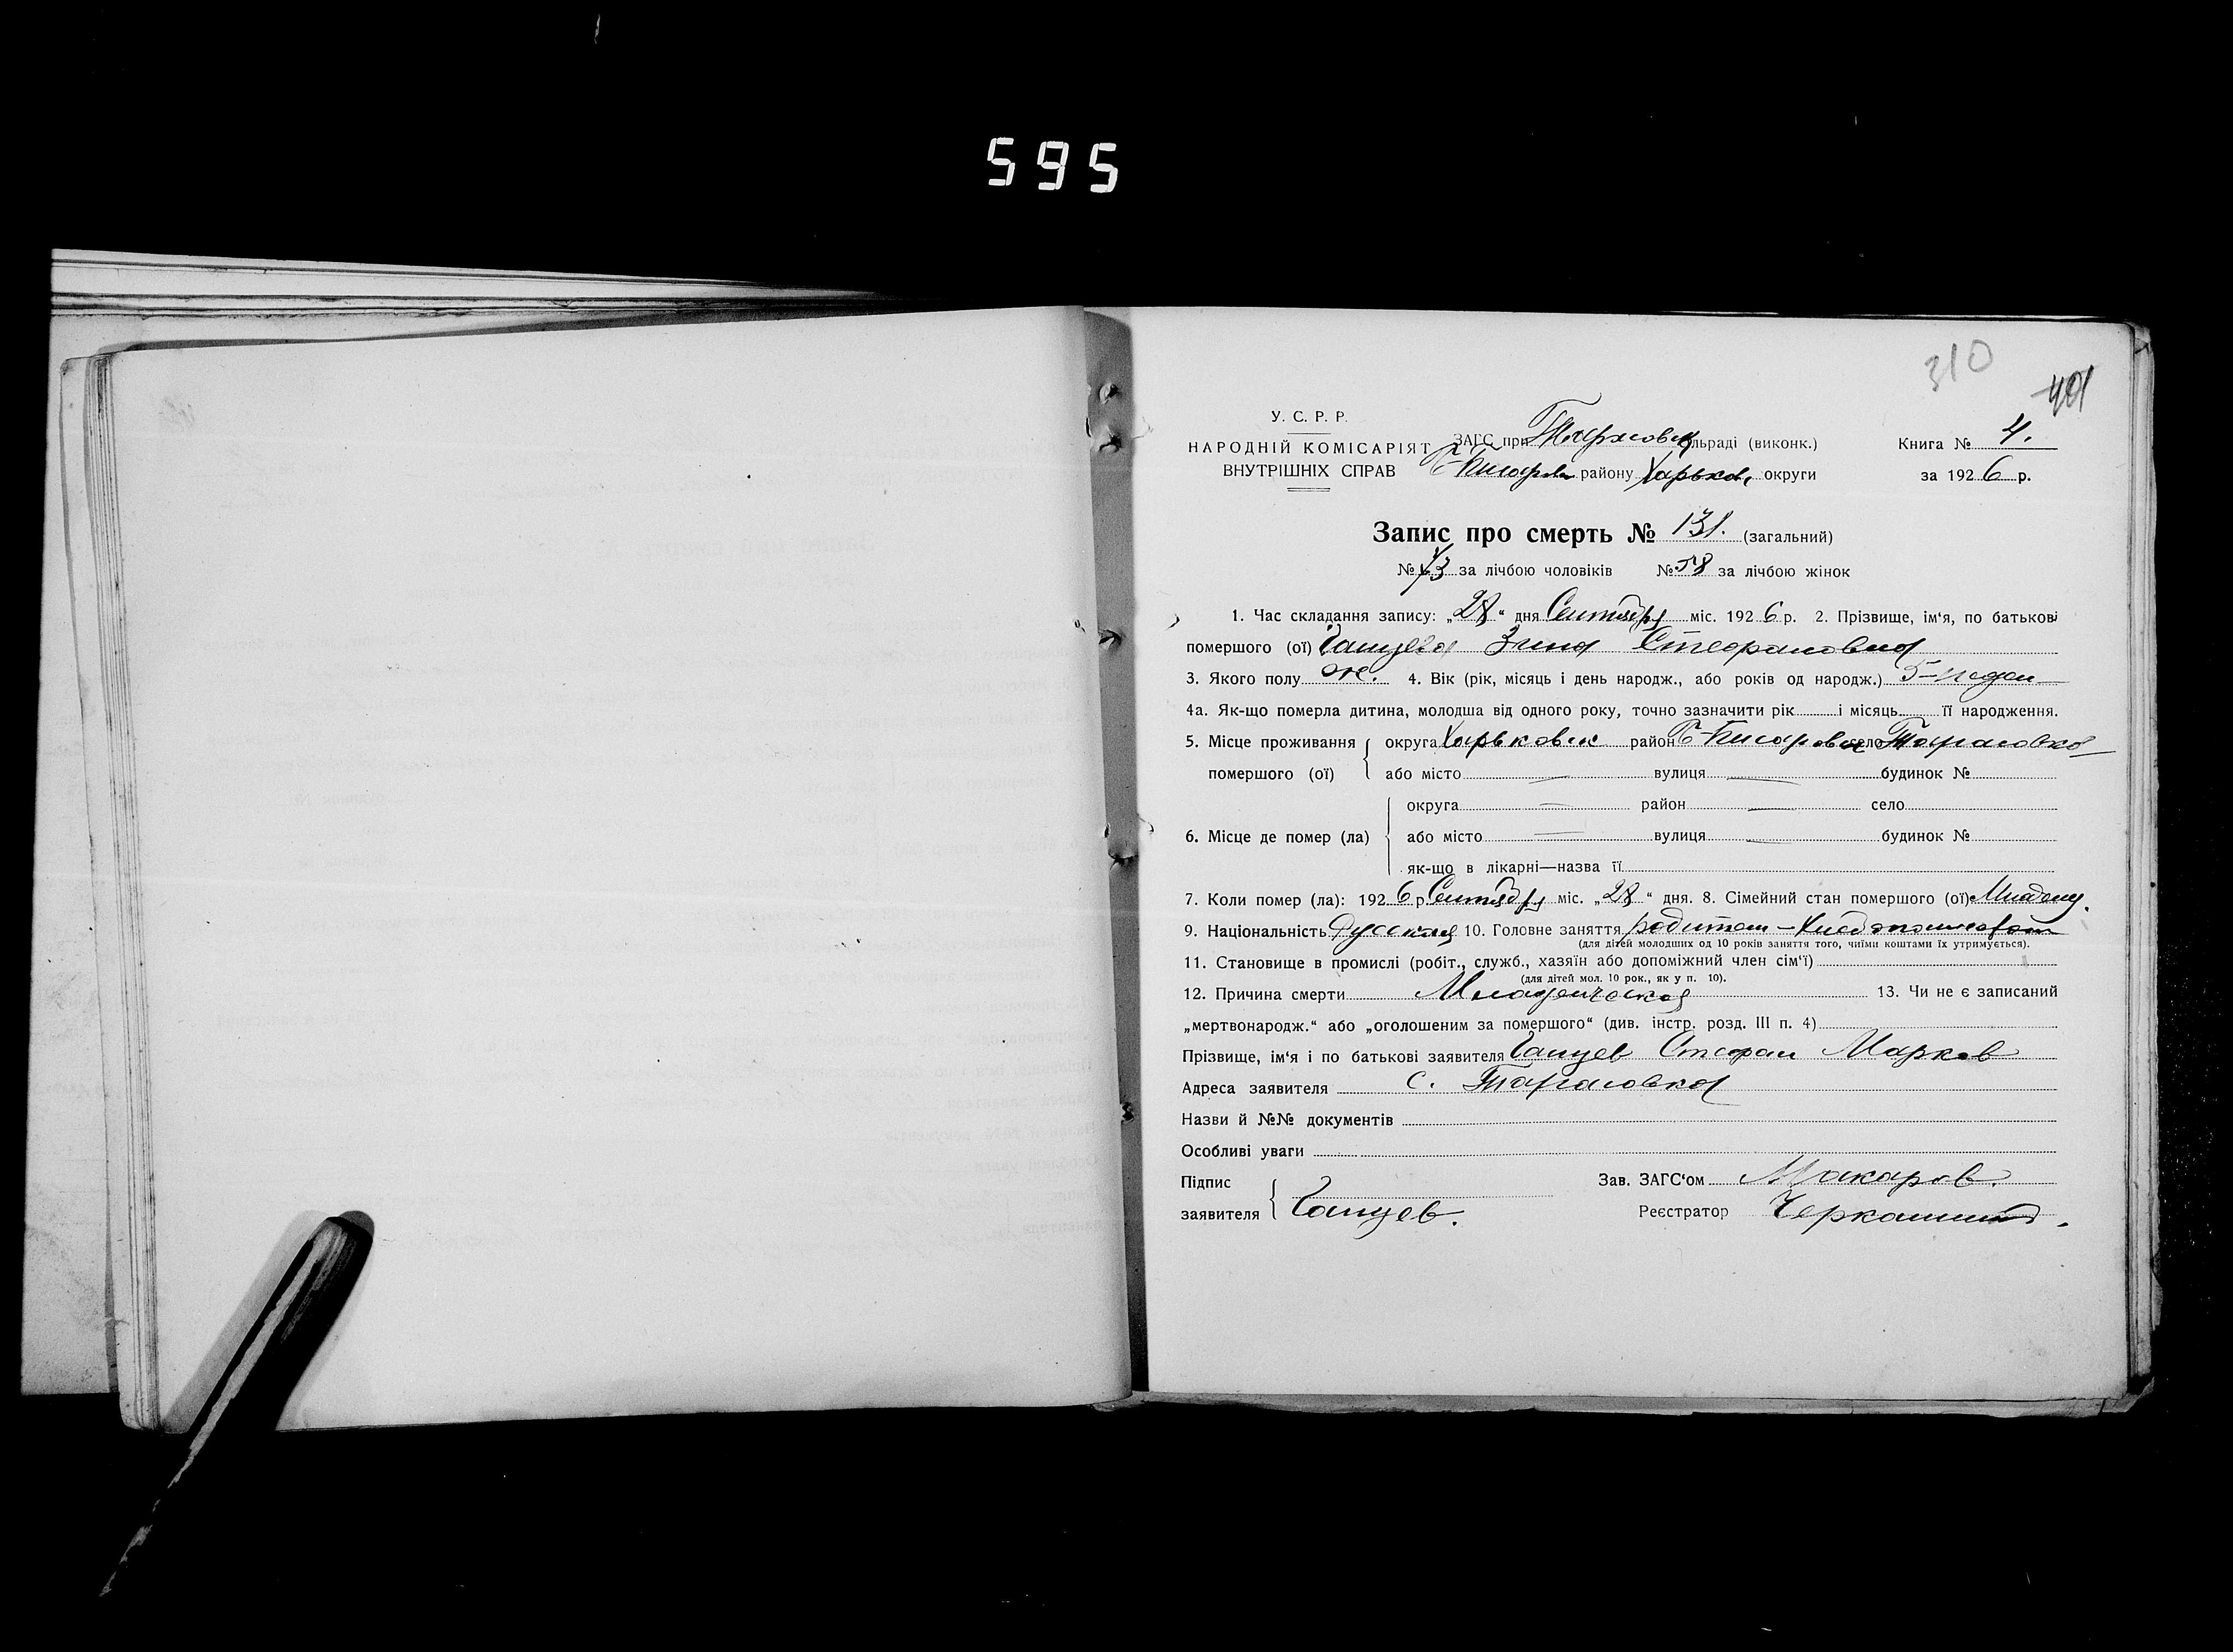 595
310
401
У. С. Р. Р.
НАРОДНІЙ КОМІСАРІЯТ
ВНУТРІШНІХ СПРАВ
ЗАГС при Тарасовск сільраді (виконк.)
Б-Писарев району Харьков. округи
Книга № 4.
за 1926 р.
Запис про смерть № 131. (загальний)
№ 73 за лічбою чоловіків № 58 за лічбою жінок
1. Час складання запису: „28“ дня Сентября міс. 1926 р. 2. Прізвище, ім‘я, по батькові
помершого (ої) Ганцева Зина Стефановна
3. Якого полу ж. 4. Вік (рік, місяць і день народж., або років од народж.) 5-недел
4а. Як-що померла дитина, молодша від одного року, точно зазначити рік і місяць її народження.
5. Місце проживання помершого (ої) округа Харьковск район Б-Писаровск село Тарасовка
або місто — вулиця — будинок №
6. Місце де помер (ла) округа — район — село
або місто — вулиця — будинок №
як-що в лікарні—назва її
7. Коли помер (ла): 1926 р. Сентября міс. „28“ дня. 8. Сімейний стан помершого (ої) Младенц.
9. Національність Русская 10. Головне заняття родители - Хлебопашеством
(для дітей молодших од 10 років заняття того, чиїми коштами їх утримується).
11. Становище в промислі (робіт., служб., хазяїн або допоміжний член сім‘ї)
(для дітей мол. 10 рок., як у п. 10).
12. Причина смерти Младенческая 13. Чи не є записаний
„мертвонародж.“ або „оголошеним за помершого“ (див. інстр. розд. III п. 4)
Прізвище, ім‘я і по батькові заявителя Ганцев Стефан Марков
Адреса заявителя с. Тарасовка
Назви й №№ документів
Особливі уваги
Підпис заявителя Ганцев.
Зав. ЗАГС‘ом Макаров.
Реєстратор Черкашин.